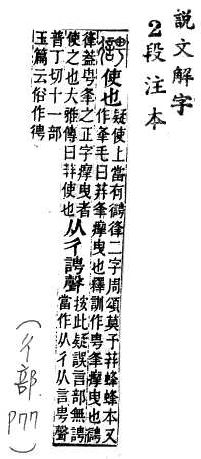 說文解字
2段注本
使也
疑使上當有㣭二字周頌莫予荓蜂蜂本又
作夆毛曰荓夆瘳曳也釋訓作甹夆瘳曳也
㣭蓋甹夆之正字瘳曳者
使之也大雅傳曰荓使也
从彳聲
按此疑誤言部無
當作从彳从言甹聲
普丁切十一部
玉篇云俗作
(彳部 P77)